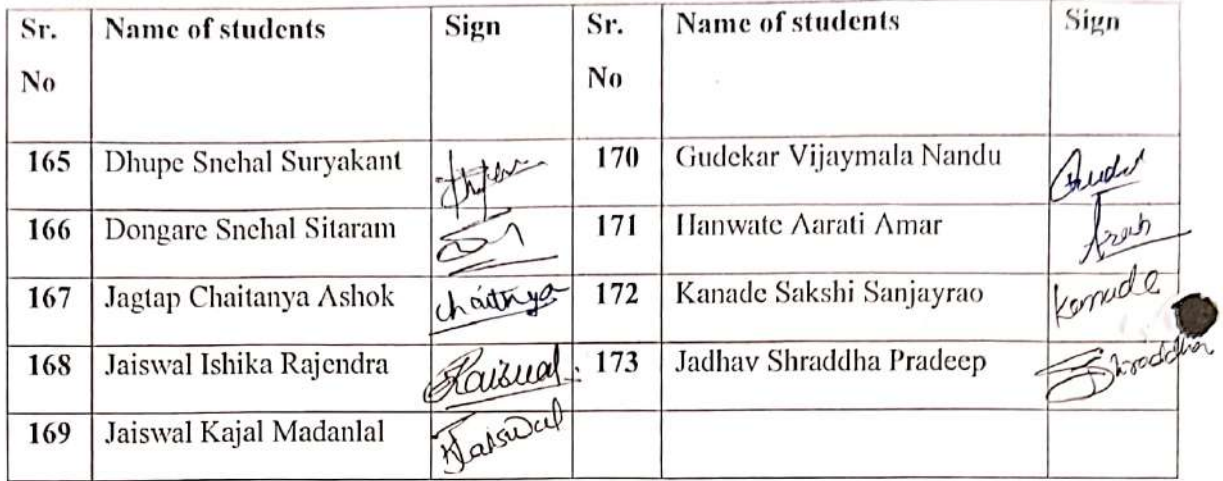 Sr. No Name of students Sign Sr. No Name of students Sign
165 Dhupe Snehal Suryakant 170 Gudekar Vijaymala Nandu
166 Dongare Snehal Sitaram 171 Hanwate Aarati Amar
167 Jagtap Chaitanya Ashok chaitnya 172 Kanade Sakshi Sanjayrao
168 Jaiswal Ishika Rajendra 173 Jadhav Shraddha Pradeep Shraddha
169 Jaiswal Kajal Madanlal KJaiswal